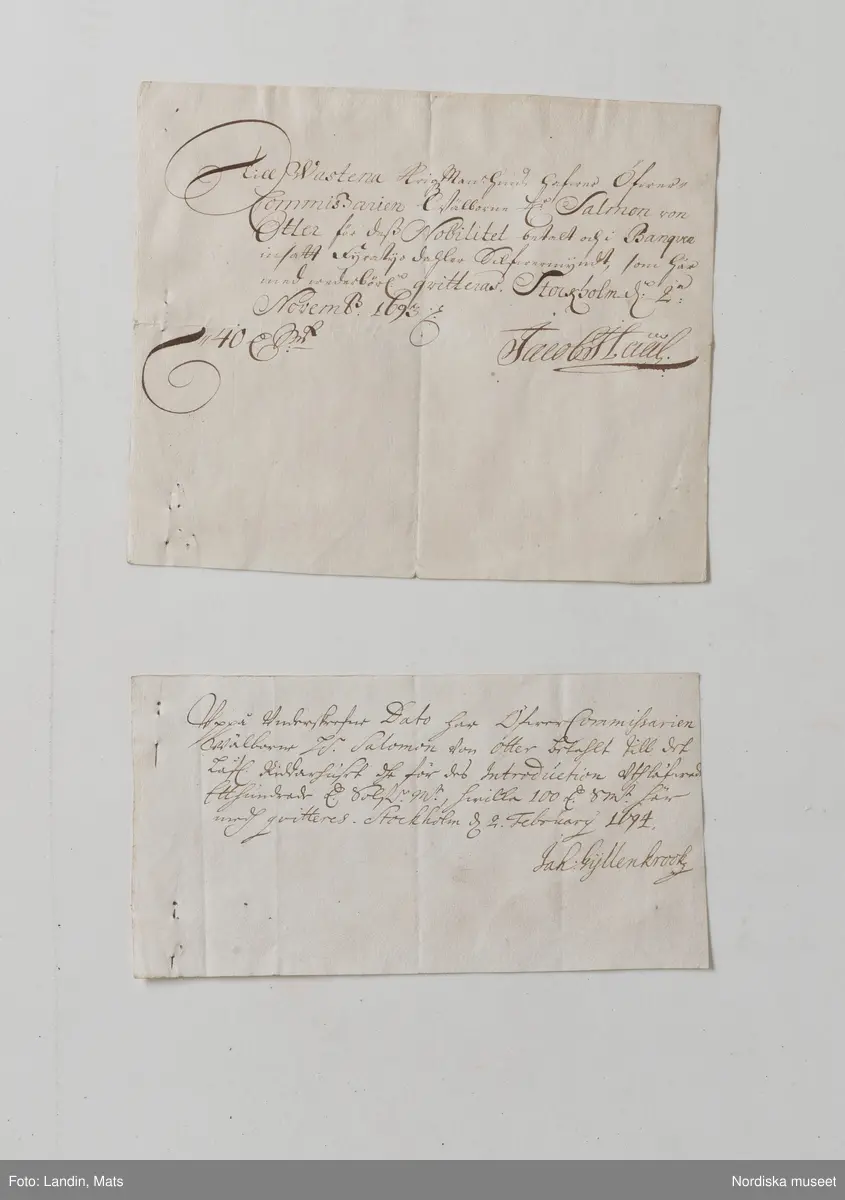 Till Wastena Krigzmans huus hafwer Öfwer-
Commissarien Wälborne Hr Salmon von
Otter för dess Nobilitet betalt och i Banquen
insatt Fyratijo dahler Silfwermynt, som här
med wederbörl: qvitteras. Stockholm d: 2:
Novemb: 1693
40 D Smt
Jacob
Uppå Underskrefne Dato har ÖfwerCommissarien
Wälborne Hr Salomon Von Otter betahlt till det
Låfl. Riddarhuset för des Introduction
Etthundrade D. Solf:r Mt, hwilka 100 D. S Mt här
med qvitteres. Stockholm d 2. February 1694.
Joh: Gyllenkrook
Foto: Landin, Mats
Nordiska museet